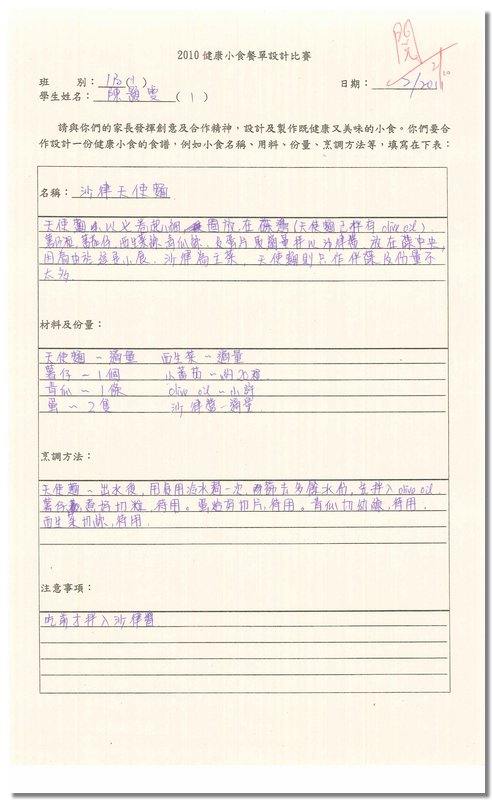 閱
2010 健康小食餐單設計比賽
班 別：1B(1)
日期：2/2010
學生姓名：陳顥雯(1)
請與你們的家長發揮創意及合作精神，設計及製作既健康又美味的小食。你們要合
作設計一份健康小食的食譜，例如小食名稱、用料、份量、烹調方法等，填寫在下表：
名稱：沙律天使麵
天使麵 圍放在碟邊(天使麵已拌有 olive oil)
放在碟中央
因為由於這是小食，沙律為主菜，天使麵則只作伴碟及份量不
太多
材料及份量：
天使麵～適量 西生菜～適量
薯仔～1個 小蕃茄～約20粒
青瓜～1條 olive oil～小許
蛋～2隻 沙律醬～適量
烹調方法：
天使麵～出水後，用食用冰水 一次，隔篩去多餘水份，先拌入olive oil
薯仔 煮好切粒，待用。蛋 切片，待用。青瓜切幼條，待用
西生菜切條，待用
注意事項：
吃前才拌入沙律醬